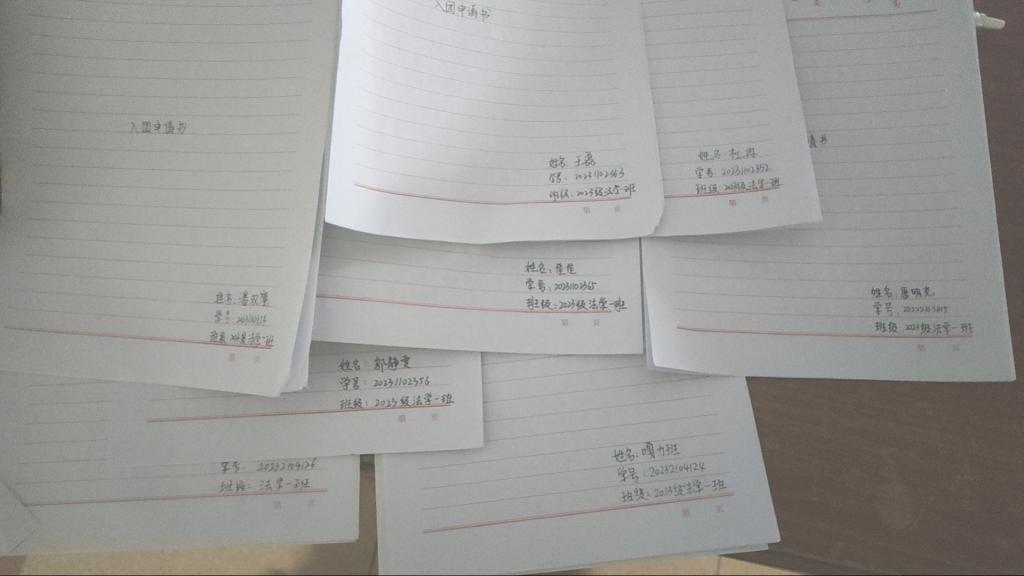 入团申请书
入团申请书
姓名：王磊
学号：20231102363
班级：2023级法学一班
第 页
姓名：杜冉
学号：20231102352
班级：2023级法学一班
第 页
请书
姓名：
学号：20231102365
班级：2023级法学一班
第 页
姓名：唐明亮
学号：
班级：2023级法学一班
第 页
姓名：潘双
学号：
班级：2023级法学一班
第 页
姓名：郭静雯
学号：20231102356
班级：2023级法学一班
第 页
姓名：嘎力班
学号：20232104124
班级：2023级法学一班
第 页
学号：20232104126
班级：法学一班
第 页